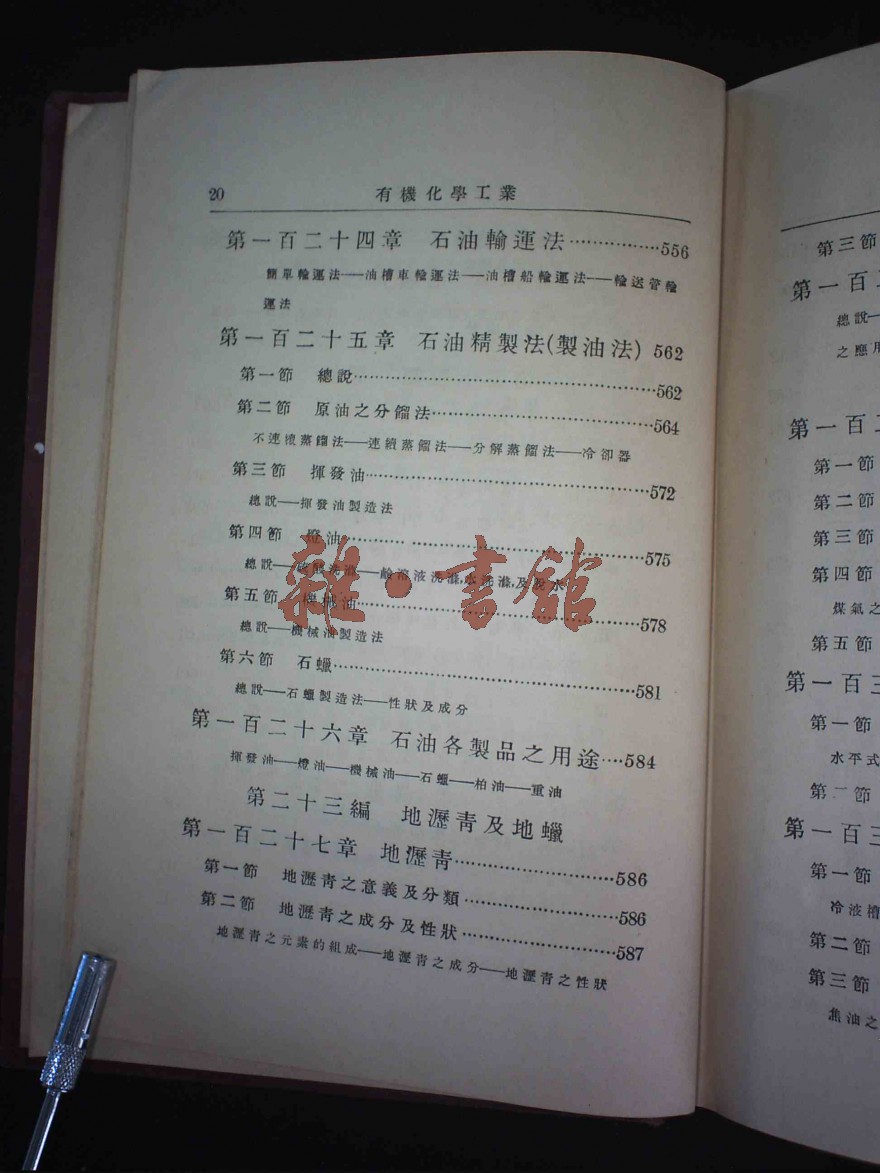 20 有機化學工業
第一百二十四章 石油輸運法················556
簡單輸運法——油槽車輸運法——油槽船輸運法——輸送管輸
運法
第一百二十五章 石油精製法(製油法) 562
第一節 總說················562
第二節 原油之分餾法················564
不連續蒸餾法——連續蒸餾法——分解蒸餾法——冷卻器
第三節 揮發油················572
總說——揮發油製造法
第四節 燈油················575
總說——硫酸洗滌——鹼溶液洗滌,水洗滌,及脫水
第五節 機械油················578
總說——機械油製造法
第六節 石蠟················581
總說——石蠟製造法——性狀及成分
第一百二十六章 石油各製品之用途····584
揮發油——燈油——機械油——石蠟——柏油——重油
第二十三編 地瀝青及地蠟
第一百二十七章 地瀝青················586
第一節 地瀝青之意義及分類················586
第二節 地瀝青之成分及性狀················587
地瀝青之元素的組成——地瀝青之成分——地瀝青之性狀
雜·書館
第三節
第一百二
總說—
之應用
第一百二
第一節
第二節
第三節
第四節
煤氣之
第五節
第一百三
第一節
水平式
第二節
第一百三
第一節
冷液槽
第二節
第三節
焦油之